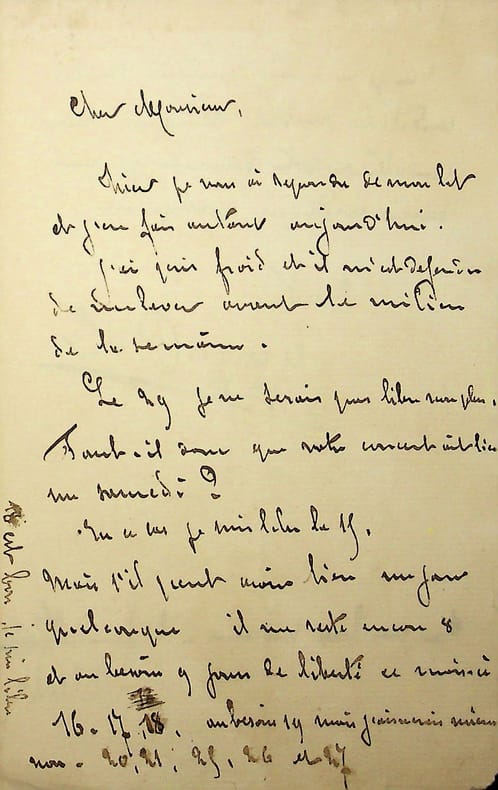 Cher Monsieur,
Hier je vous ai repondu de mon lit
et j'en fais autant aujourd'hui.
j'ai pris froid et il m'est defendu
de me lever avant le milieu
de la semaine.
Le 29 je ne serais pas libre non plus.
Faut-il donc que votre concert ait lieu
un samedi ?
En ce cas je suis libre le 15.
Mais s'il peut avoir lieu un jour
quelconque il me reste encore 8
et au besoin 9 jours de liberté ce mois-ci
16. 17. 18. au besoin 19 mais j'aimerais mieux
non. 20, 21, 25, 26 et 27
18 est bon. Je suis libre